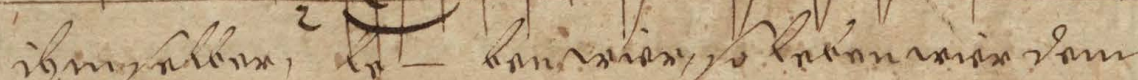 ihm selber, le- ben wier, so leben wier dem